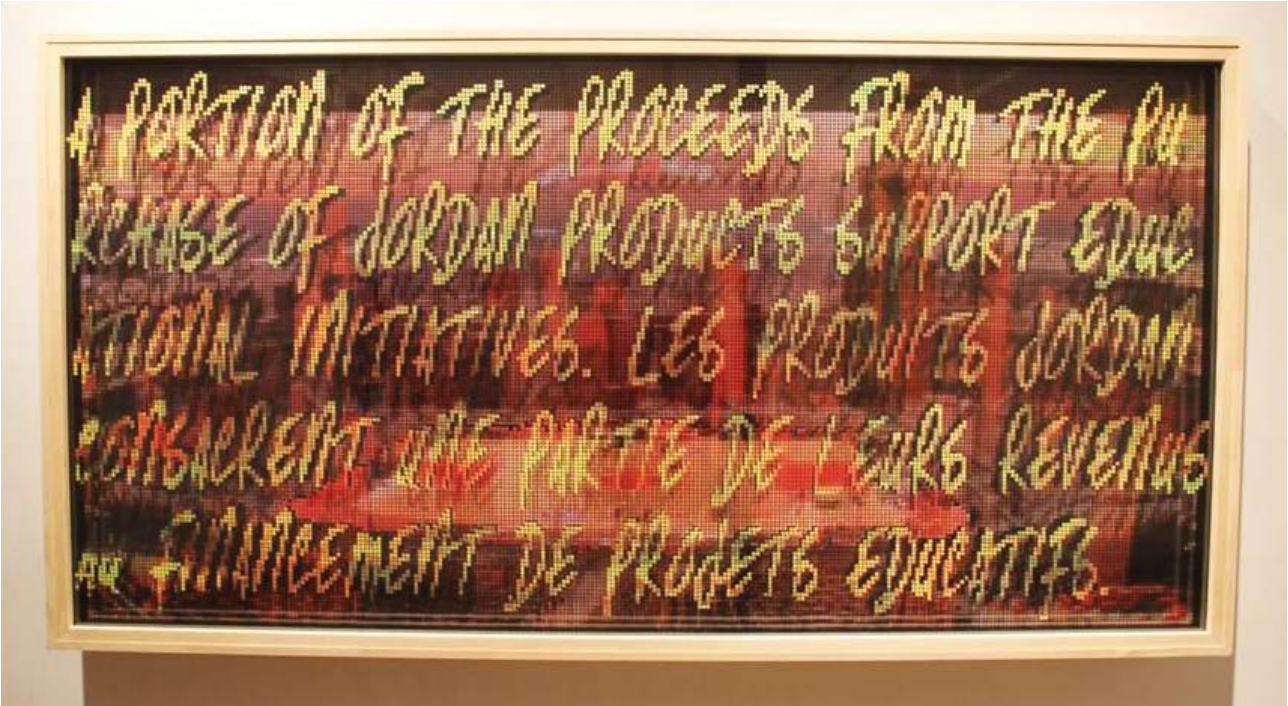 A PORTION OF THE PROCEEDS FROM THE PU
RCHASE OF JORDAN PRODUCTS SUPPORT EDUC
ATIONAL INITIATIVES. LES PRODUITS JORDAN
CONSACRENT UNE PARTIE DE LEURS REVENUS
AU FINANCEMENT DE PROJETS EDUCATIFS.